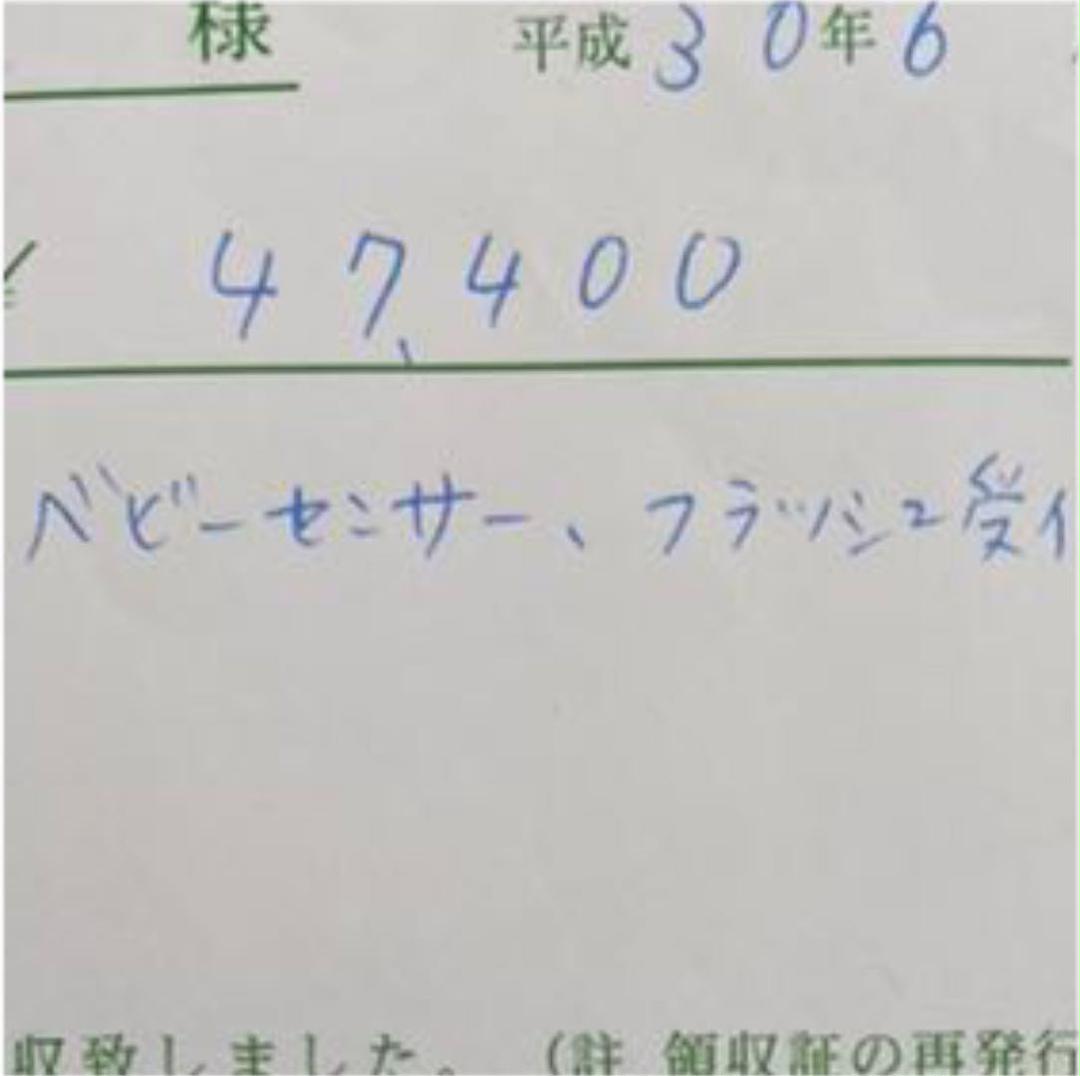 様 平成30年6
47,400
ベビーセンサー、フラッシュ受
収致しました。 (註 領収証の再発行